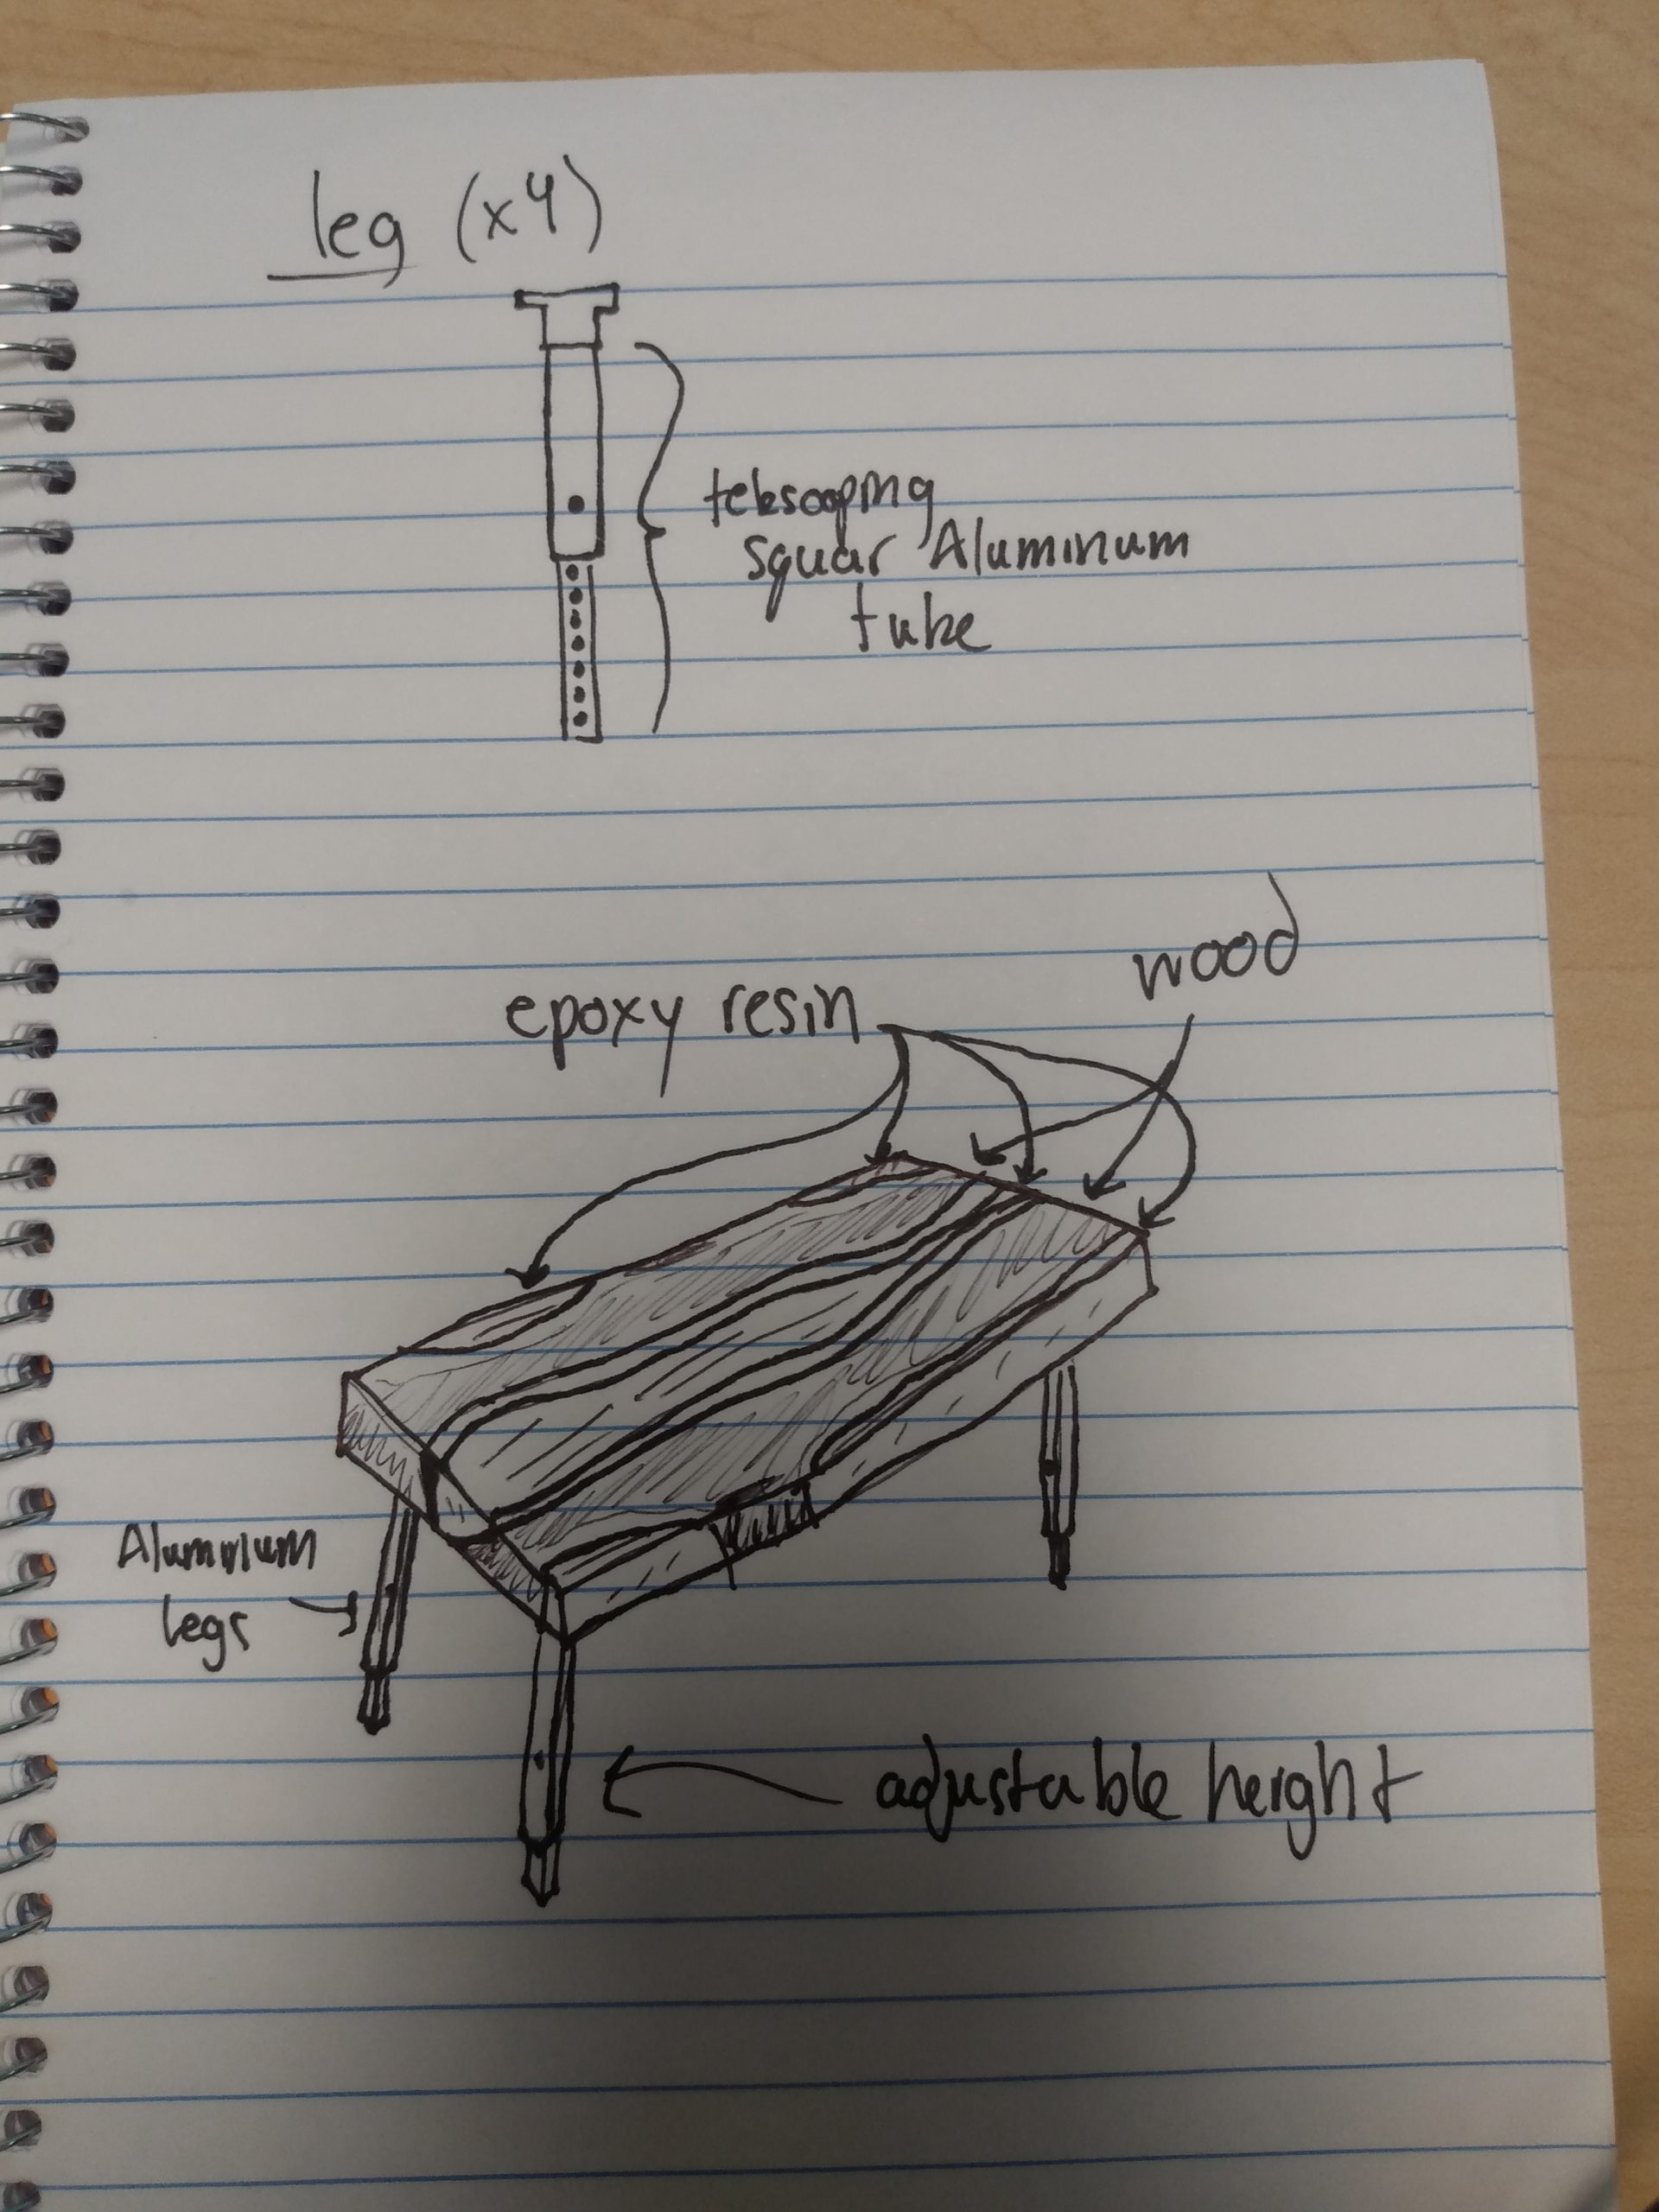 leg (x4)
telescoping
squar Aluminum
tube
wood
epoxy resin
Aluminum
legs
adjustable height